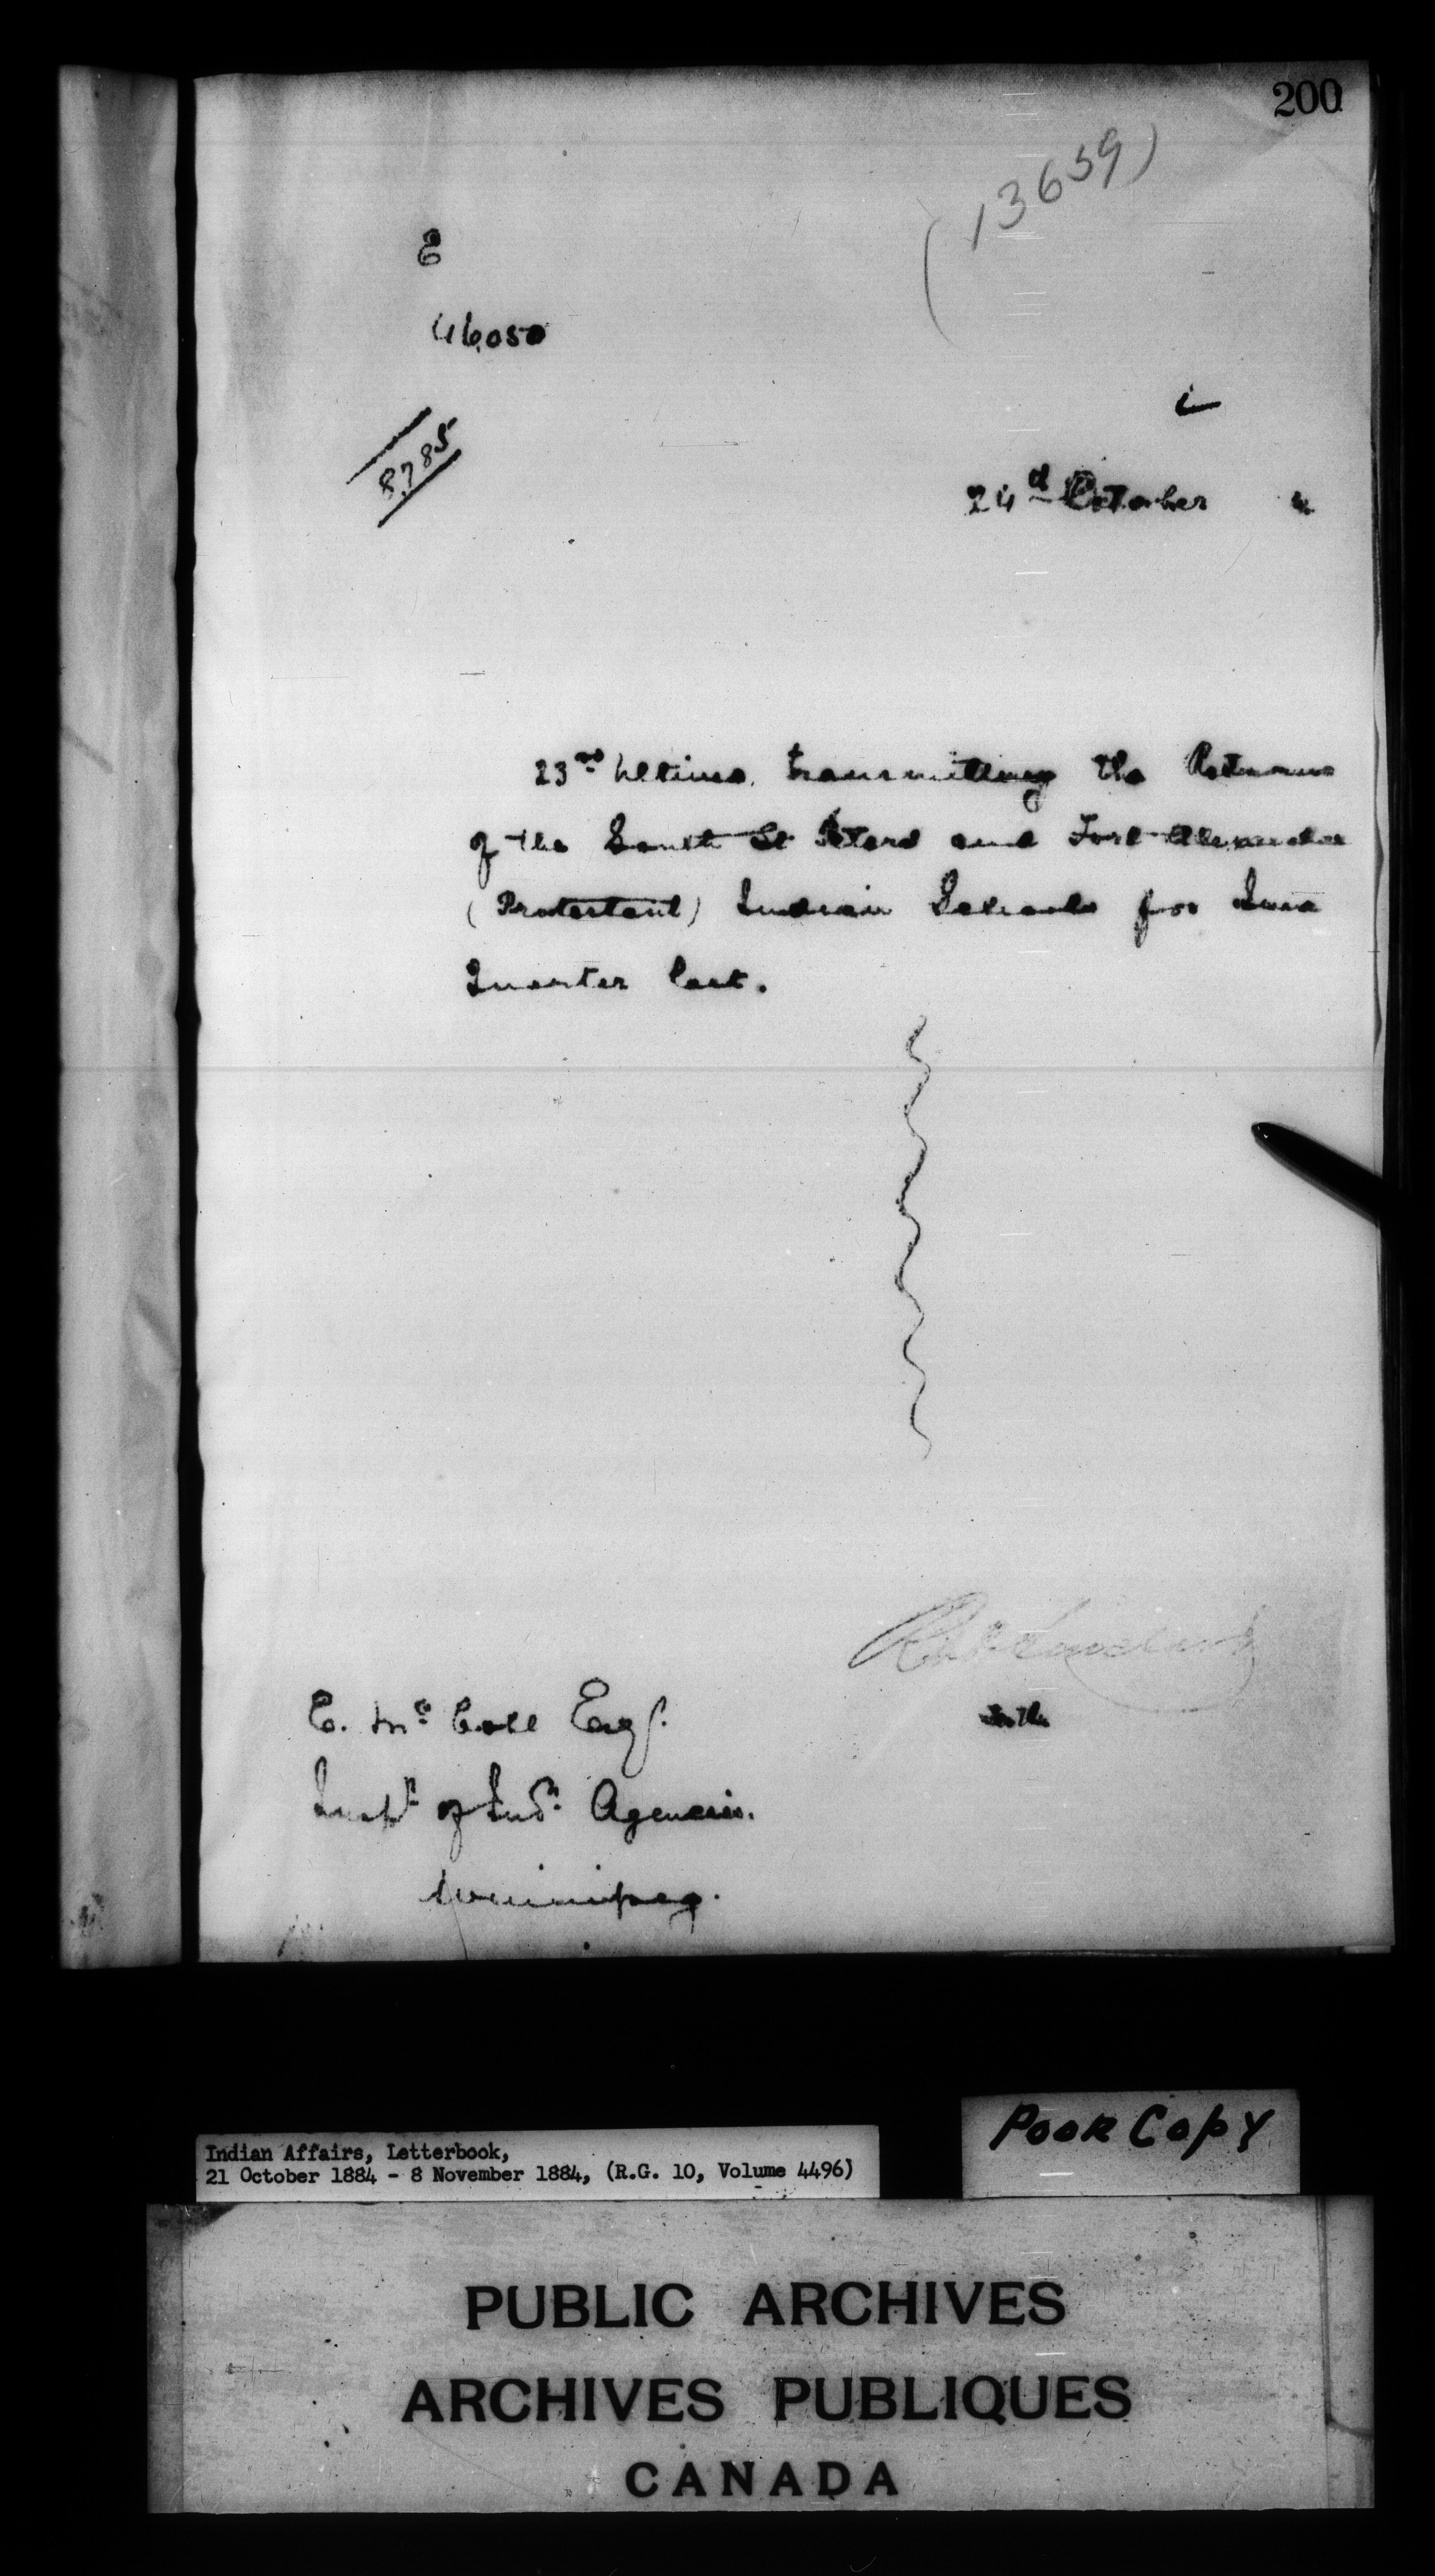 200
(13659)
E
46050
8785
24d October
23rd Ultimo, transmitting the Returns
of the South St Peters and Fort Alexander
(Protestant) Indian Schools for June
Quarter last.
E. McColl Esq.
Inspr of Indn Agencies.
Winnipeg.
Poor Copy
Indian Affairs, Letterbook,
21 October 1884 - 8 November 1884, (R.G. 10, Volume 4496)
PUBLIC ARCHIVES
ARCHIVES PUBLIQUES
CANADA